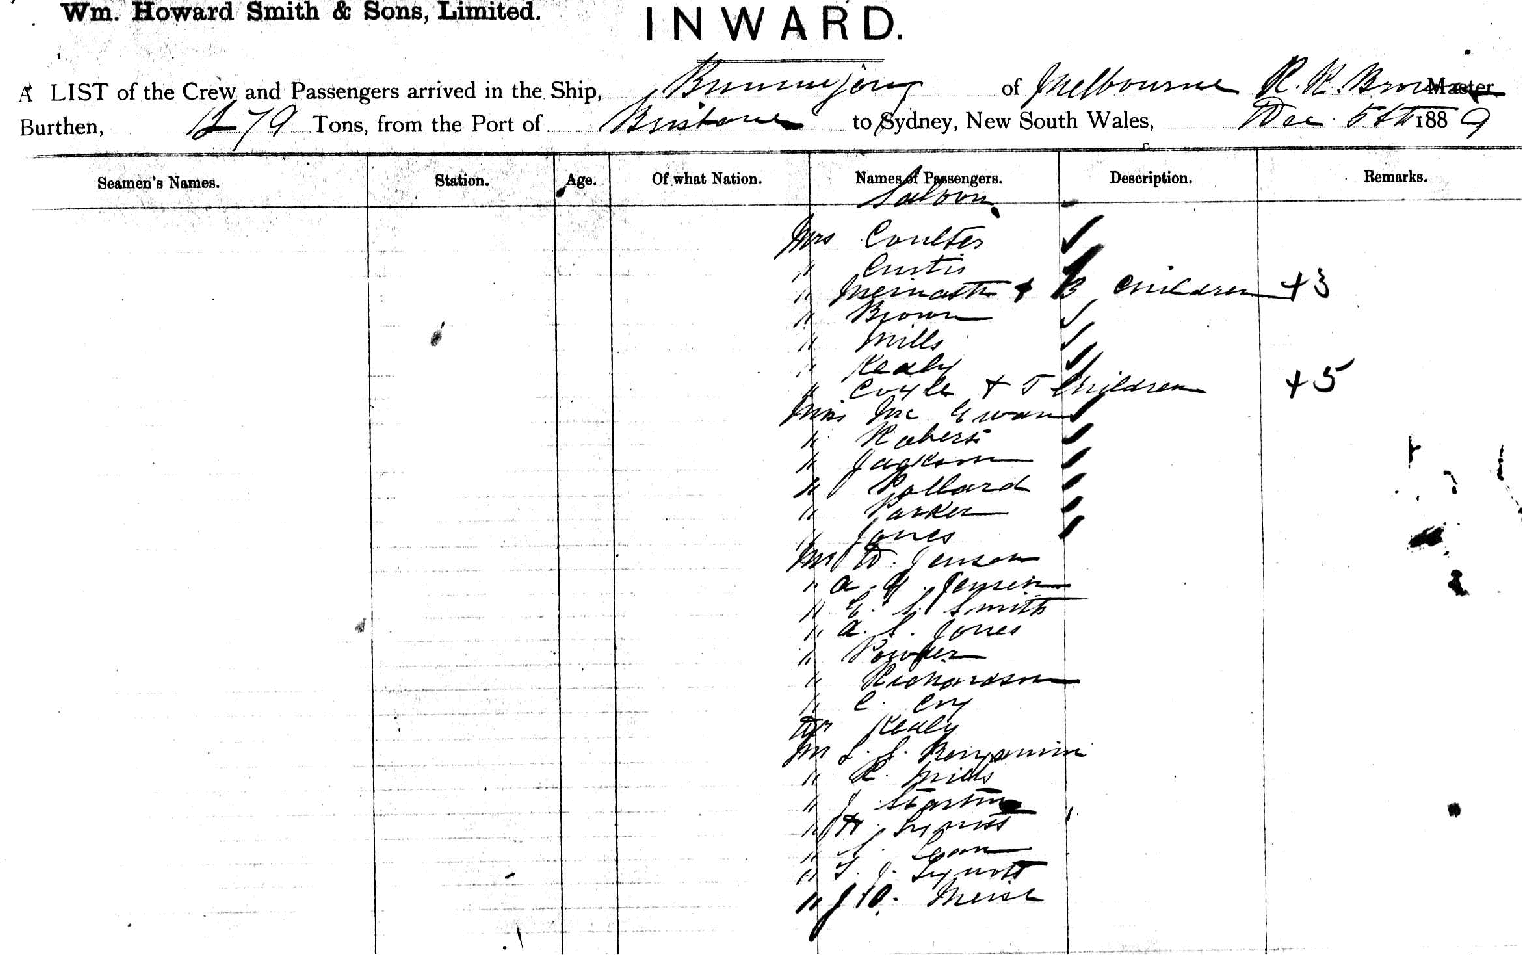 Wm. Howard Smith & Sons, Limited.
INWARD.
A LIST of the Crew and Passengers arrived in the Ship, Buninyong of Melbourne R. K. Brown Master
Burthen, 1279 Tons, from the Port of Brisbane to Sydney, New South Wales, Dec. 5th 1889
Seamen's Names. Station. Age. Of what Nation. Names of Passengers. Description. Remarks.
Saloon
Mrs Coulter
" Curtis
" & 3 children +3
" Brown
" Mills
" Kealy
" Coyle + 5 children +5
Miss Mc Ewan
" Roberts
" Jackson
" Pollard
" Parker
" Jones
Mr W. Jenson
" A. G. Jensen
" E. G. Smith
" A. S. Jones
" Powder
" Richardson
" C. Coy
Dr Kealy
Mr S. S. Benjamin
" R. Mills
" J.
" H.
"
" J.
" J. D.